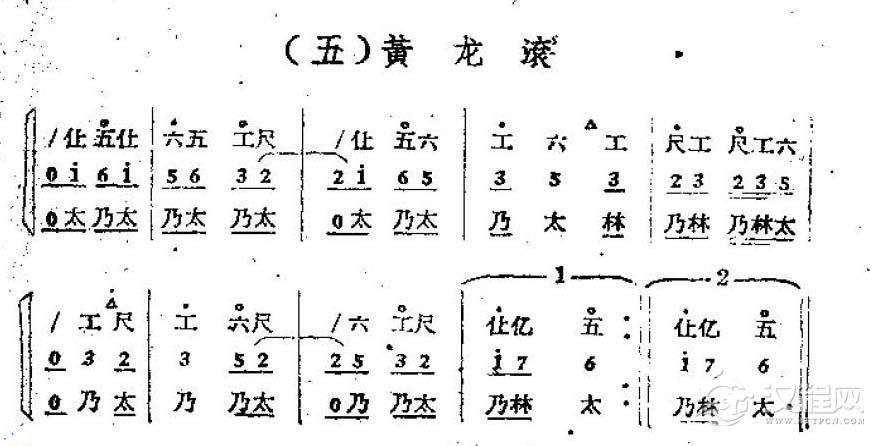 （五）黄龙滚
/仩五仩 六五工尺 /仩五六 工六工 尺工尺工六
0i 6i 56 32 2i 65 3 5 3 23 235
0太乃太 乃太乃太 0太乃太 乃太林 乃林乃林太
1 2
/工尺 工六尺 /六工尺 仩亿五 仩亿五
0 3 2 3 52 25 32 i7 6 i7 6
0乃太 乃乃太 0乃乃太 乃林太 乃林太
汉程网
WWW.HTTPCN.COM